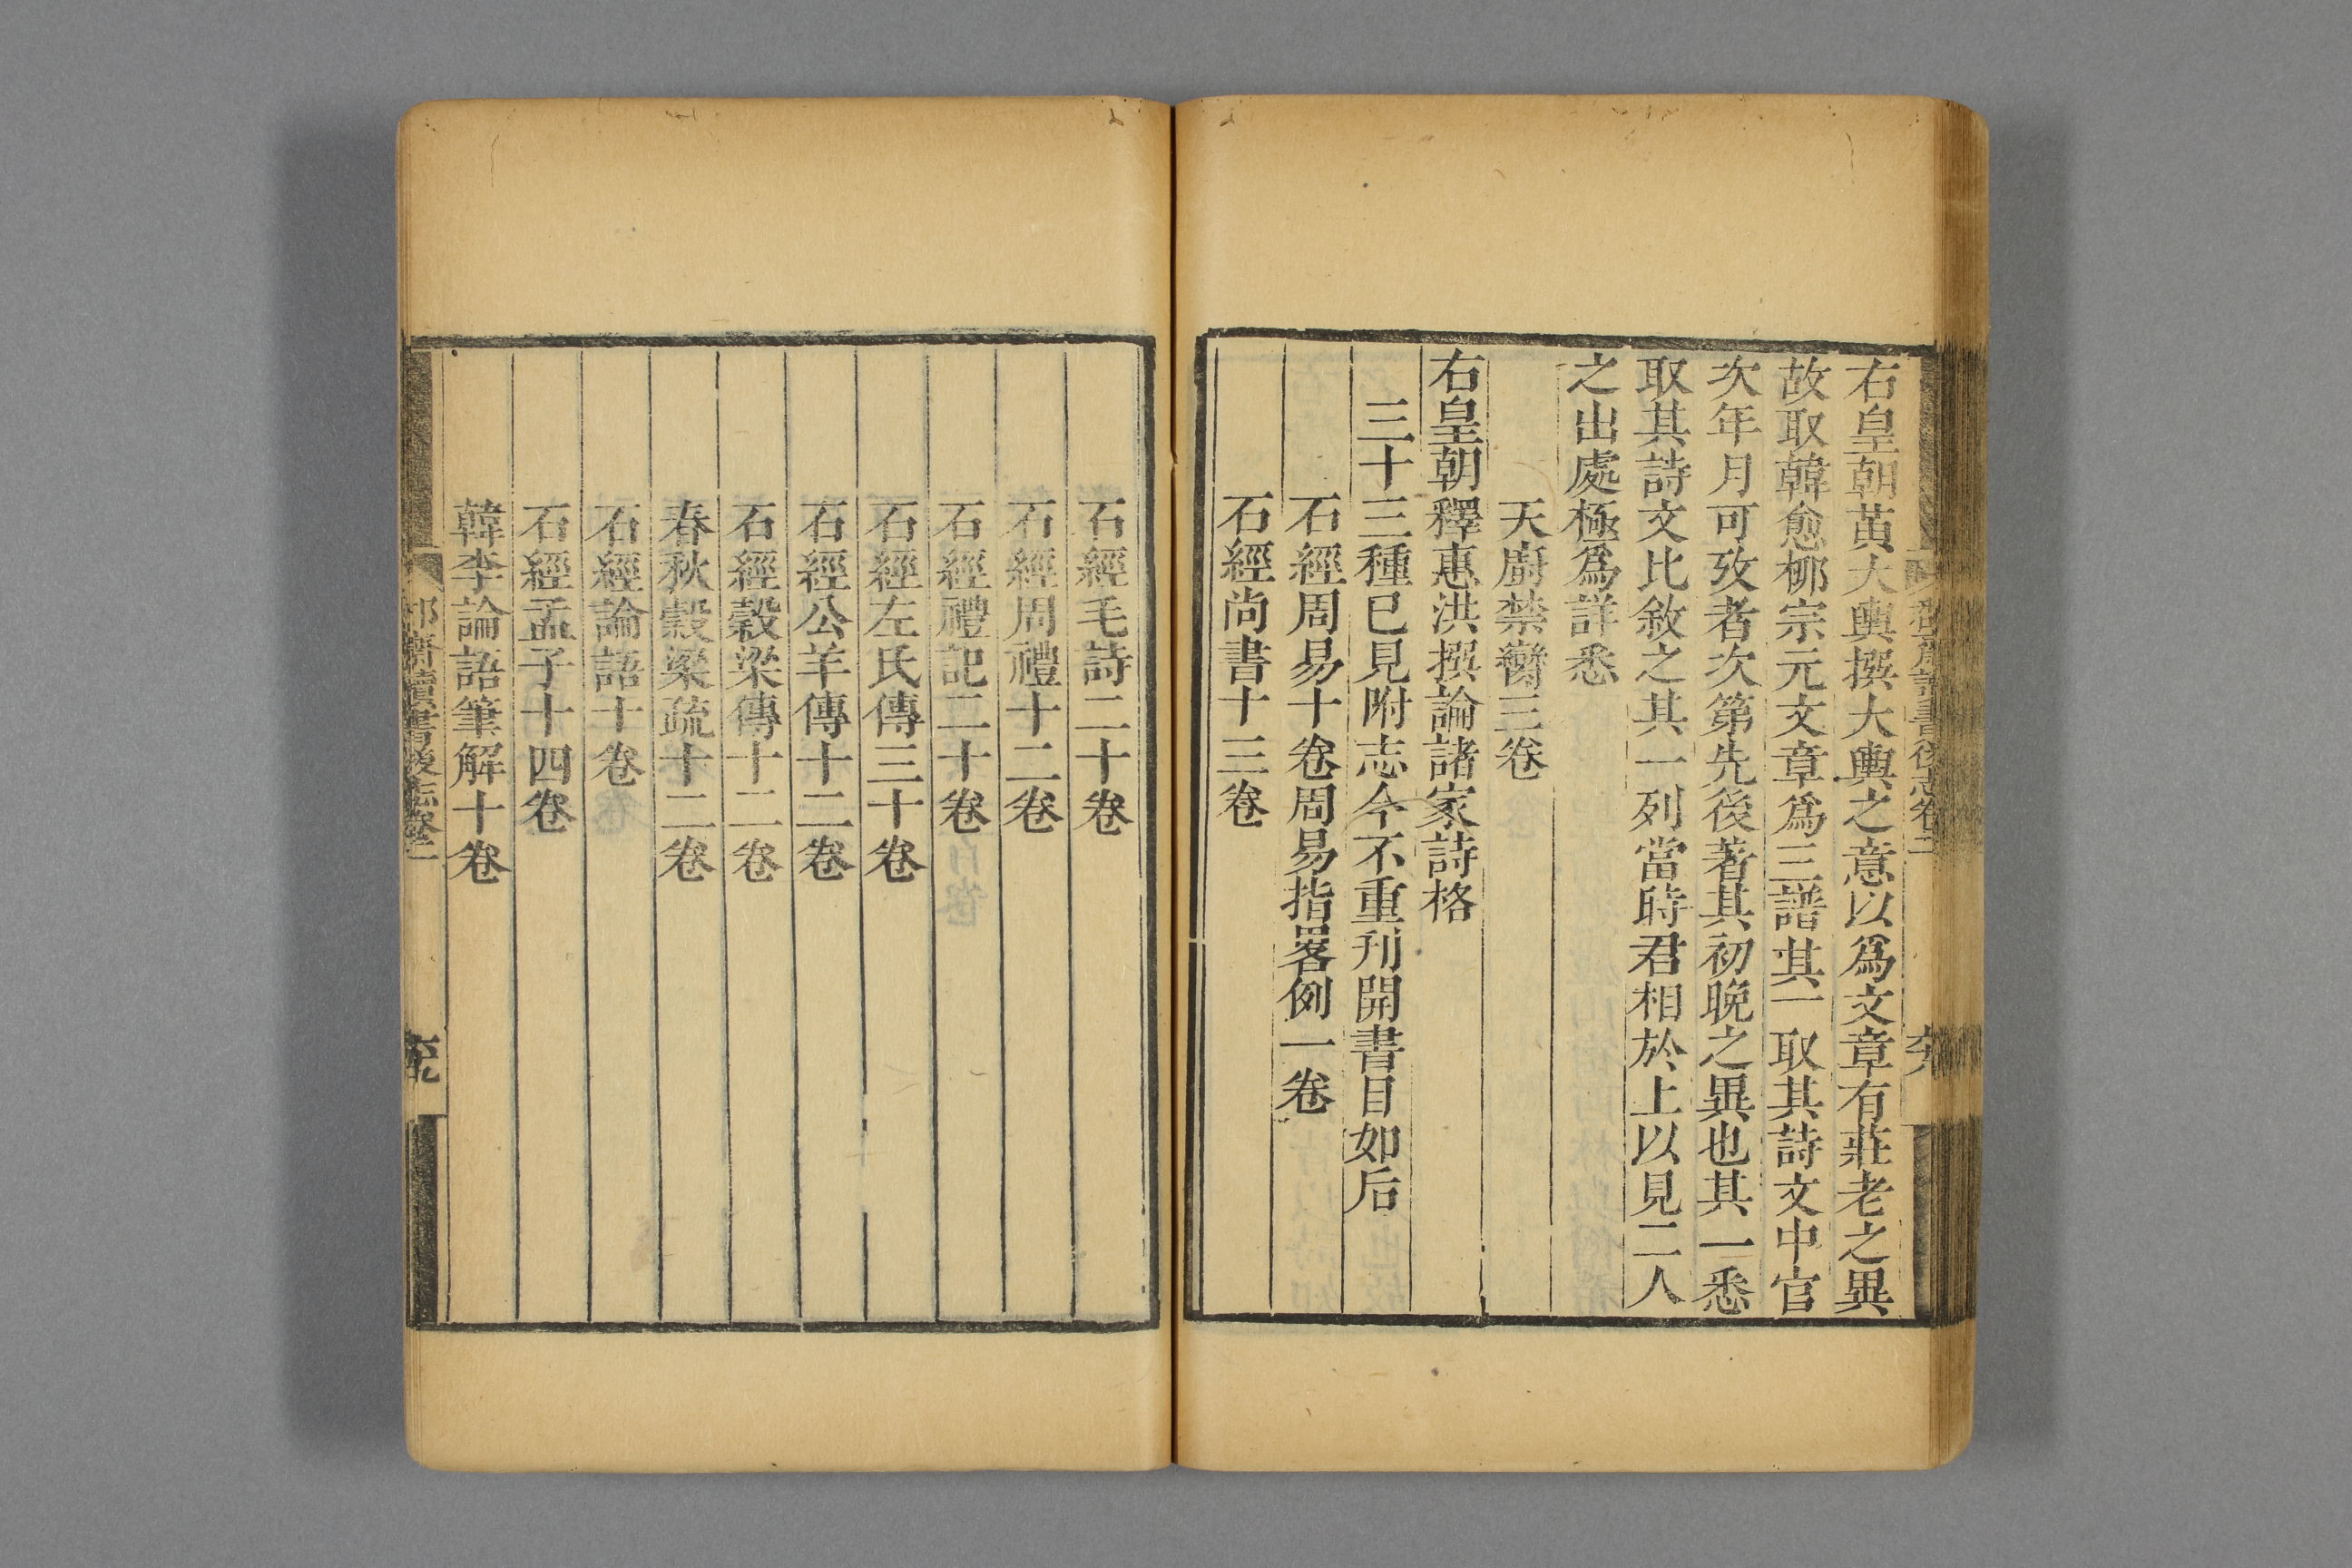 右皇朝黃大輿撰大輿之意以爲文章有莊老之異
故取韓愈柳宗元文章爲三譜其一取其詩文中官
次年月可攷者次第先後著其初晚之異也其一悉
取其詩文比敘之其一列當時君相於上以見二人
之出處極爲詳悉
天廚禁臠三卷
右皇朝釋惠洪撰論諸家詩格
三十三種已見附志今不重刋開書目如后
石經周易十卷周易指畧例一卷
石經尚書十三卷
石經毛詩二十卷
石經周禮十二卷
石經禮記二十卷
石經左氏傳三十卷
石經公羊傳十二卷
石經穀梁傳十二卷
春秋穀梁疏十二卷
石經論語十卷
石經孟子十四卷
韓李論語筆解十卷
讀書後志卷二